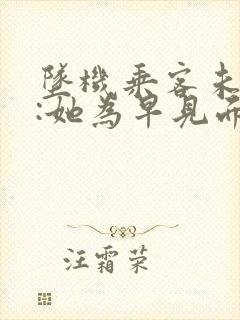 墜機乘客未
:她為早見兩
汪霜荣